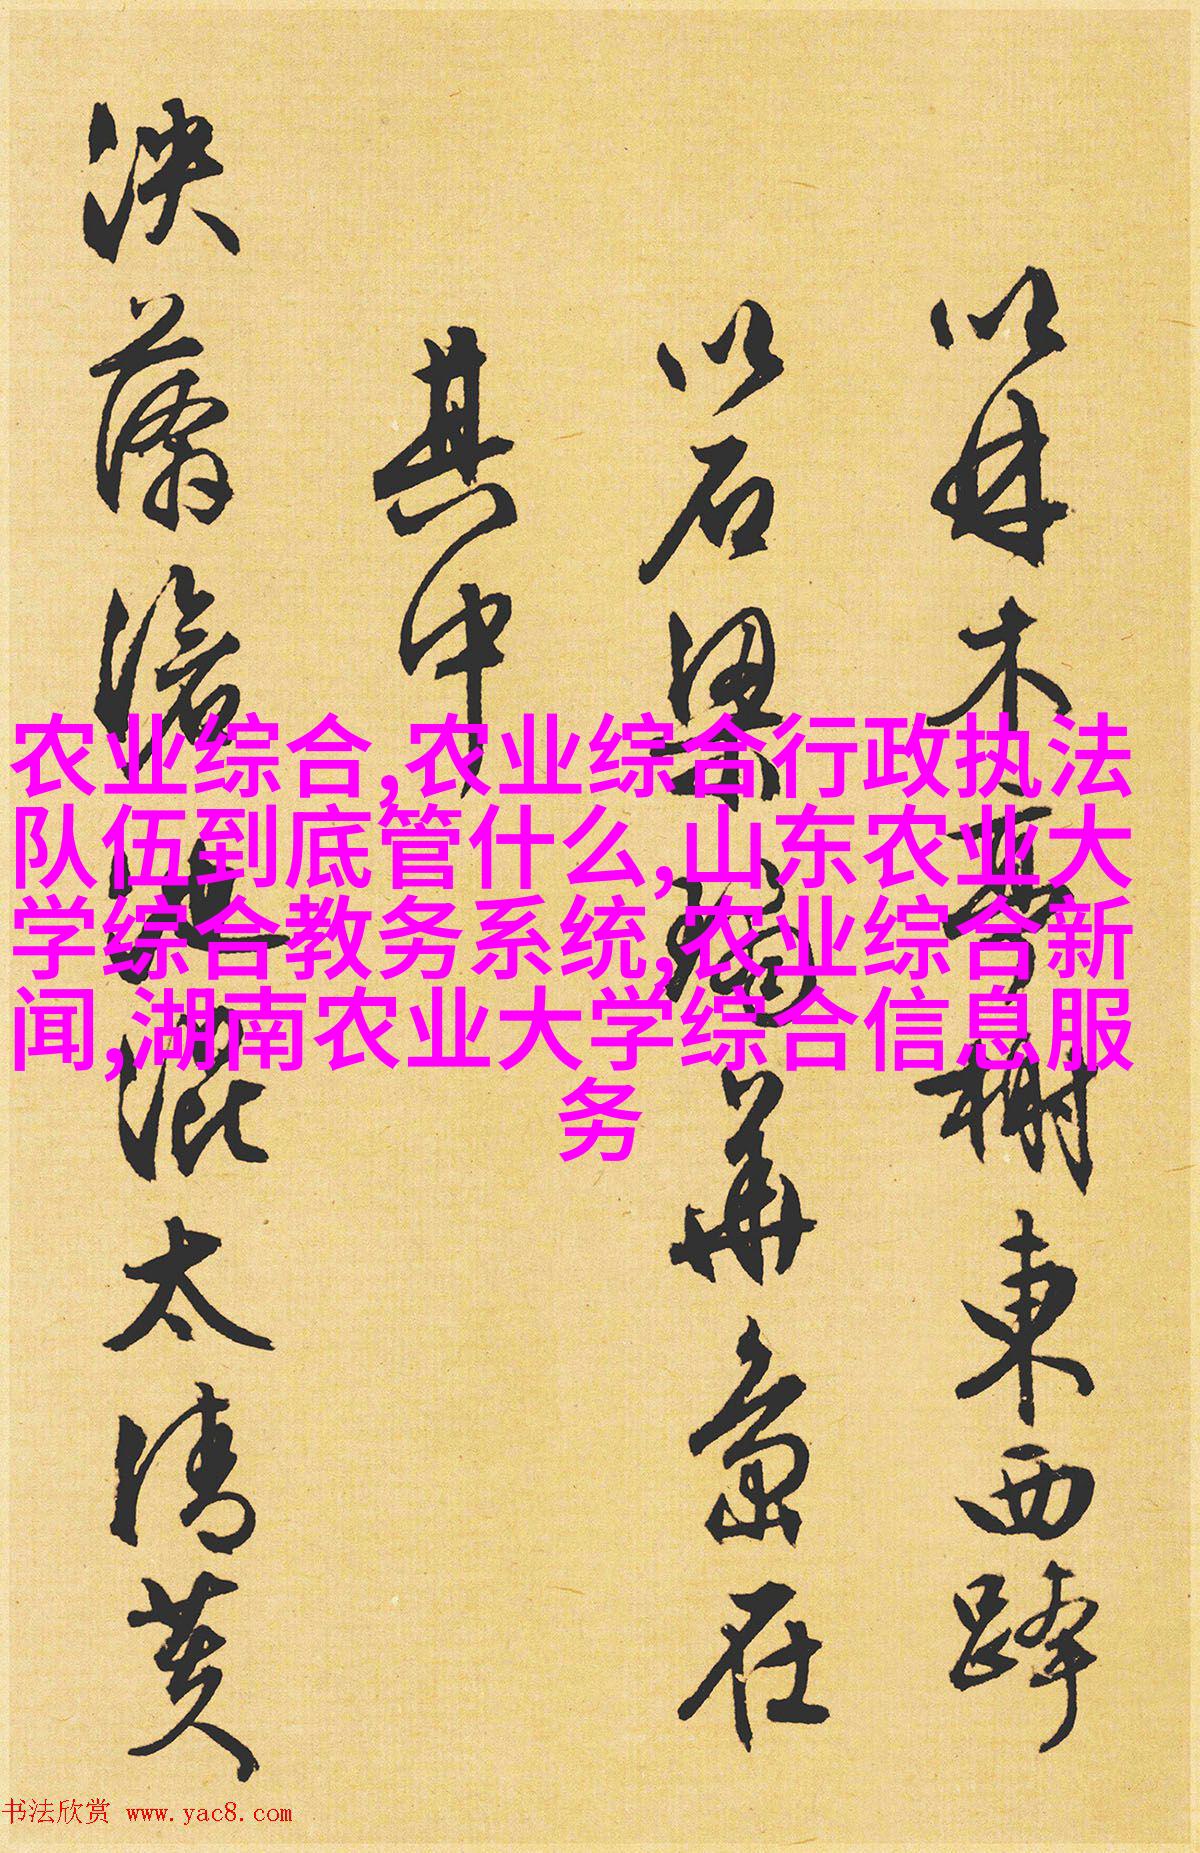 以林木𦊰榭東西跨
以石梁瑤華島在
其中
泱蒲滄池混太清黄
农业综合,农业综合行政执法
队伍到底管什么,山东农业大
学综合教务系统,农业综合新
闻,湖南农业大学综合信息服
务
书法欣赏 www.yac8.com